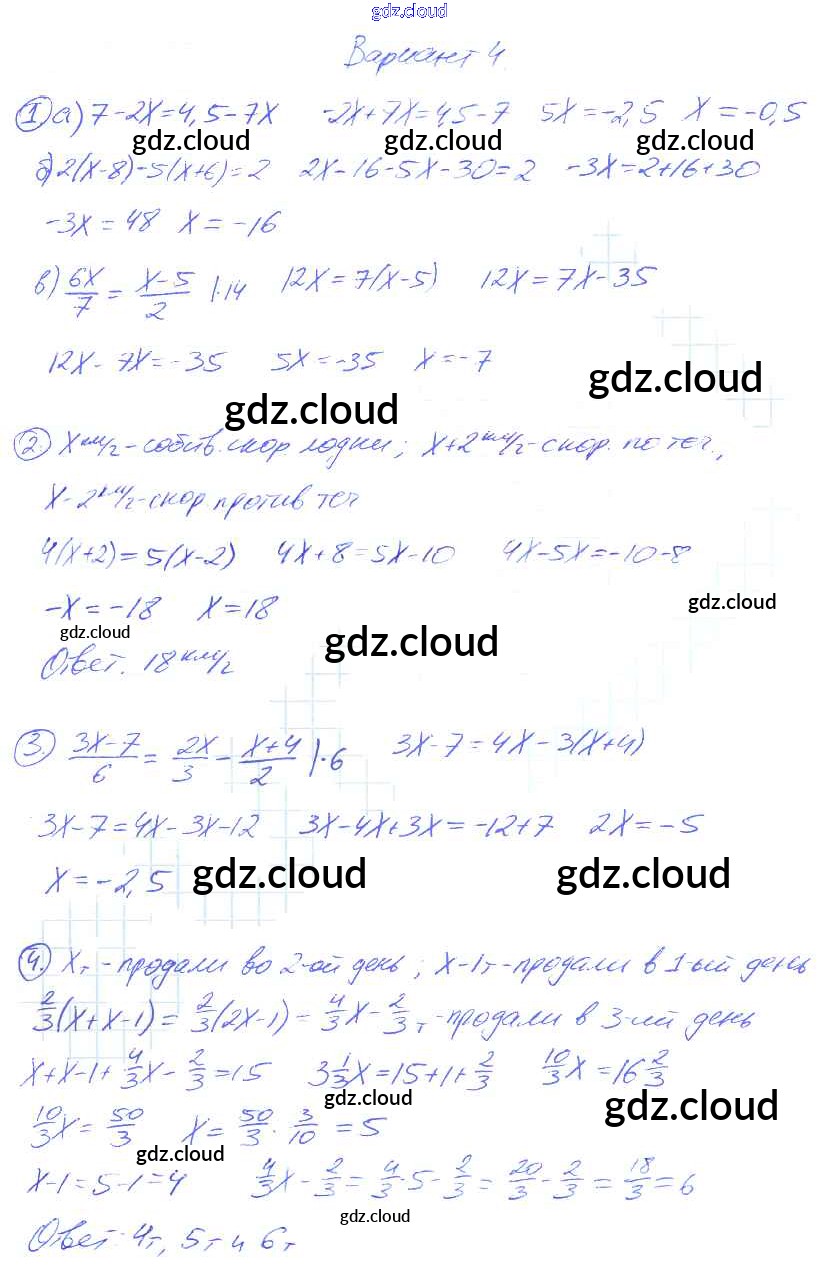 gdz.cloud
Вариант 4.
① а) 7-2x=4,5-7x   -2x+7x=4,5-7   5x=-2,5   x=-0,5
gdz.cloud   gdz.cloud   gdz.cloud
б) 2(x-8)-5(x+6)=2   2x-16-5x-30=2   -3x=2+16+30
-3x=48   x=-16
в) 6x/7 = x-5/2 |·14   12x=7(x-5)   12x=7x-35
12x-7x=-35   5x=-35   x=-7
gdz.cloud
gdz.cloud
② x км/г - собств. скор. лодки; x+2 км/г - скор. по теч.,
x-2 км/г - скор. против теч
4(x+2)=5(x-2)   4x+8=5x-10   4x-5x=-10-8
-x=-18   x=18   gdz.cloud
gdz.cloud   gdz.cloud
Ответ. 18 км/г
③. 3x-7/6 = 2x/3 - x+4/2 |·6   3x-7=4x-3(x+4)
3x-7=4x-3x-12   3x-4x+3x=-12+7   2x=-5
x=-2,5   gdz.cloud   gdz.cloud
④. xт - продали во 2-ой день; x-1т - продали в 1-ый день
2/3(x+x-1) = 2/3(2x-1) = 4/3x - 2/3 т - продали в 3-ий день
x+x-1+4/3x-2/3=15   3 1/3x=15+1+2/3   10/3x=16 2/3
gdz.cloud   gdz.cloud
10/3x = 50/3   x = 50/3 · 3/10 = 5
gdz.cloud
x-1=5-1=4   4/3x - 2/3 = 4/3·5 - 2/3 = 20/3 - 2/3 = 18/3 = 6
gdz.cloud
Ответ: 4т, 5т и 6т